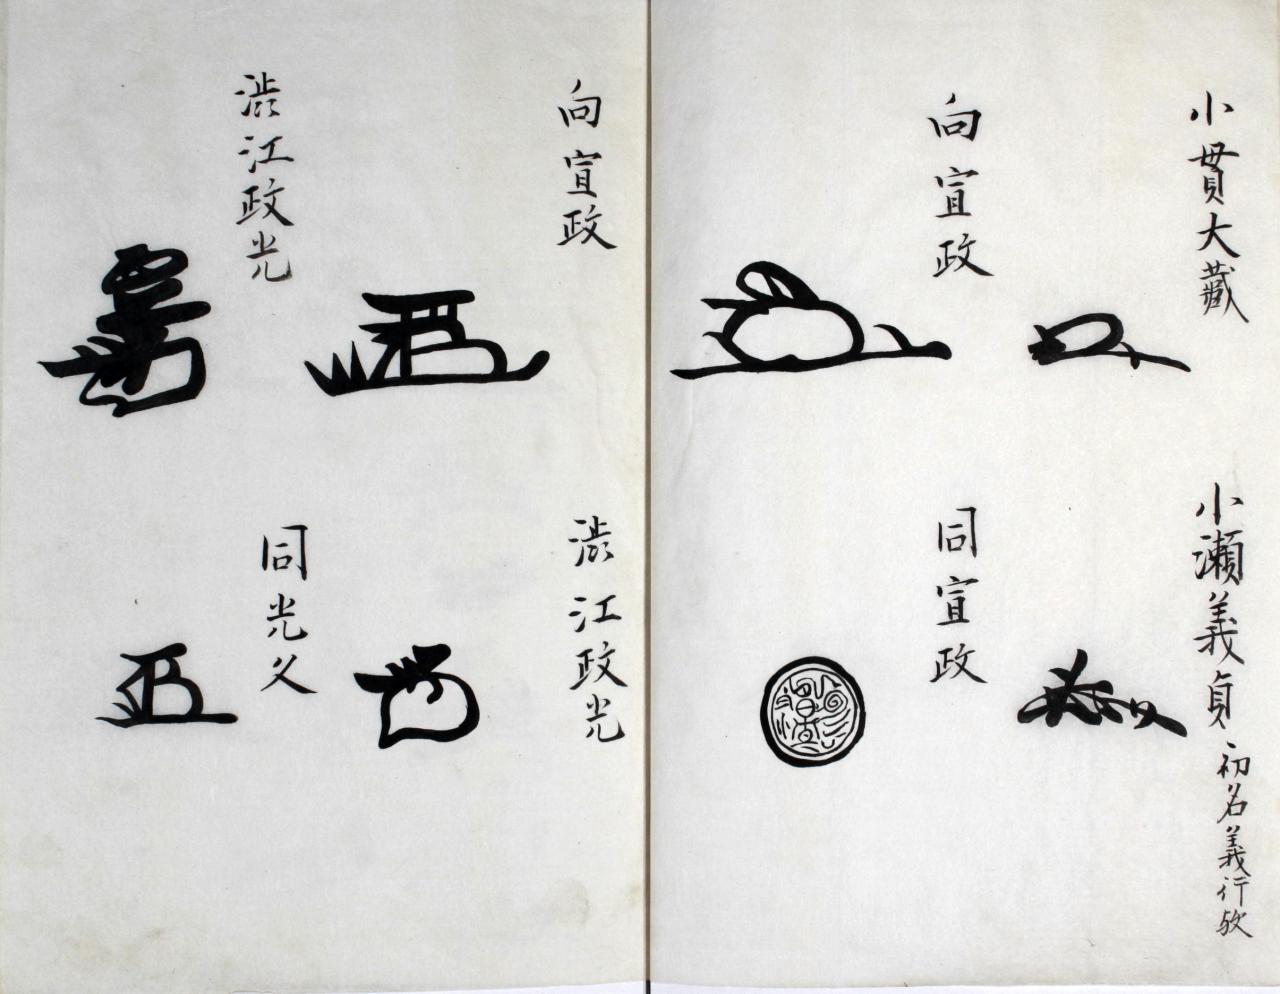 小貫大蔵
小瀬義貞 初名義行欤
向宣政
同宣政
向宣政
渋江政光
渋江政光
同光久